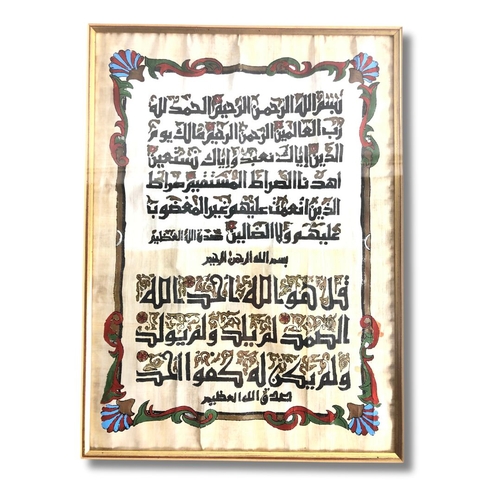 بسم الله الرحمن الرحيم الحمد لله
رب العالمين الرحمن الرحيم مالك يوم
الدين إياك نعبد وإياك نستعين
اهدنا الصراط المستقيم صراط
الذين انعمت عليهم غير المغضوب
عليهم ولا الضالين صدق الله العظيم
بسم الله الرحمن الرحيم
قل هو الله احد الله
الصمد لم يلد ولم يولد
ولم يكن له كفوا احد
صدق الله العظيم